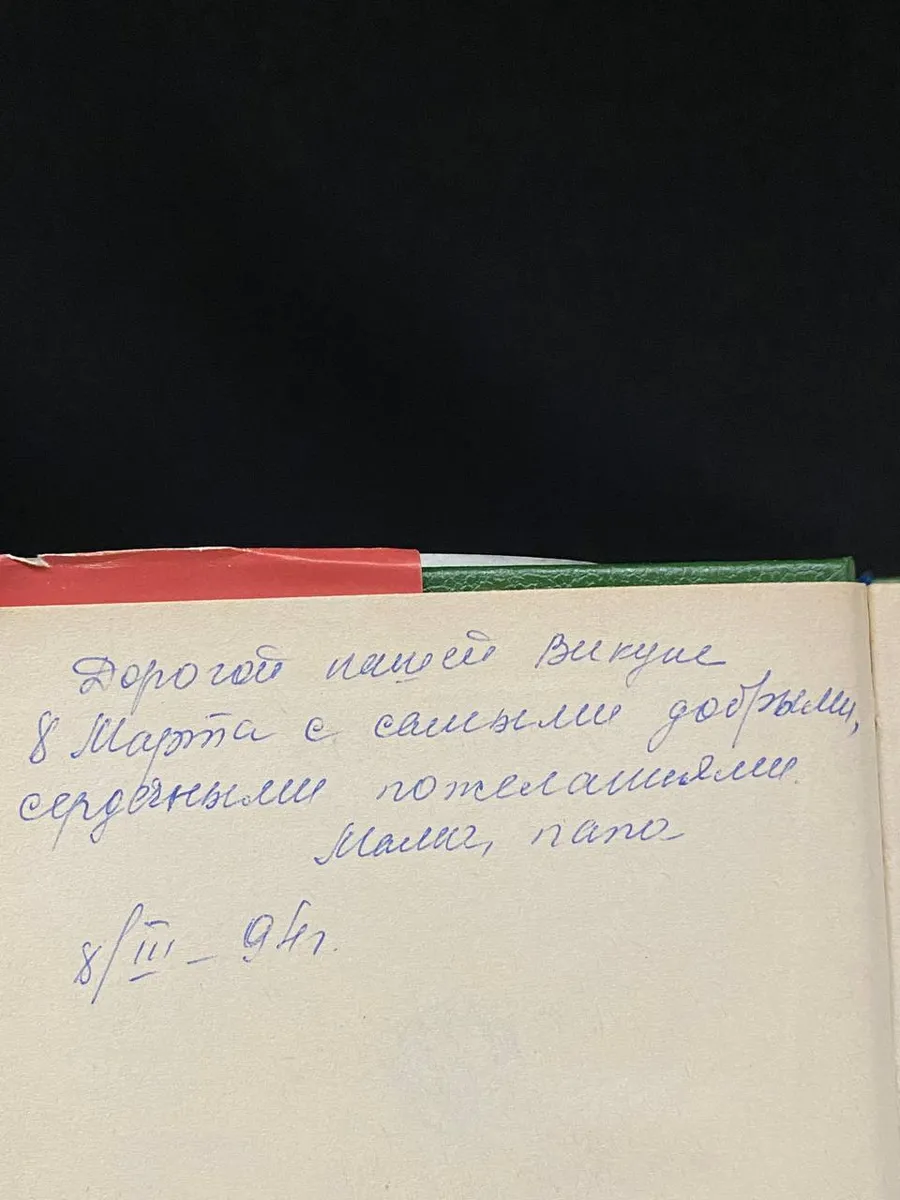 Дорогой нашей Викуше
8 Марта с самыми добрыми,
сердечными пожеланиями.
Мама, папа
8/III – 94г.